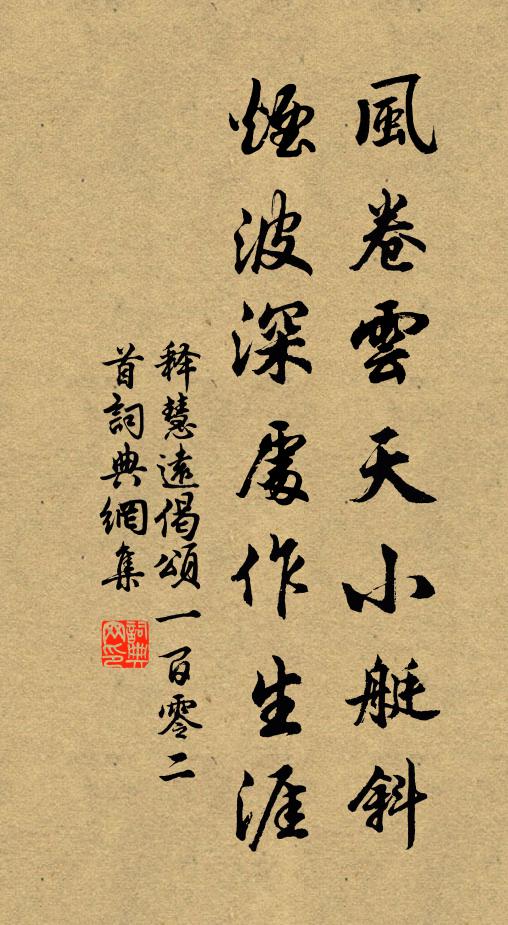 風卷雲天小艇斜
煙波深處作生涯
释慧遠偈頌一百零二
首詞典網集
詞典
网印